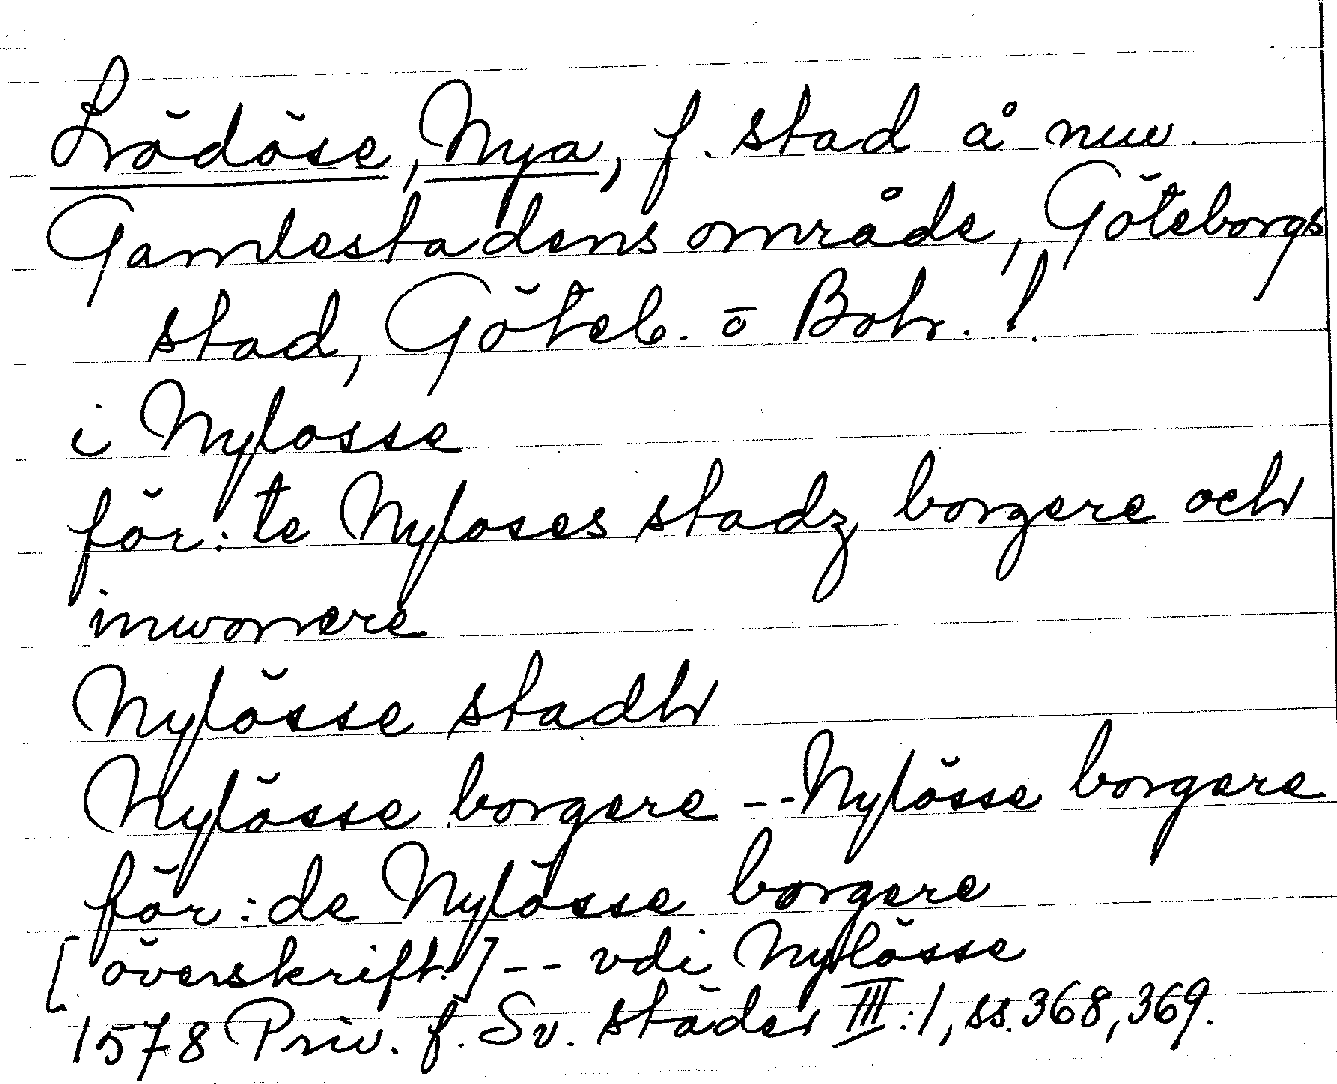 Lödöse, Nya, f. stad å nuv.
Gamlestadens område, Göteborgs
stad, Göteb. o Boh. l.
i Nylosse
för: te Nyloses stadz borgere och
inwonere
Nylösse stadh
Nylösse borgere -- Nylösse borgere
för: de Nylösse borgere
[överskift.] -- vdi Nylösse
1578 Priv. f. Sv. städer III:1, ss. 368, 369.